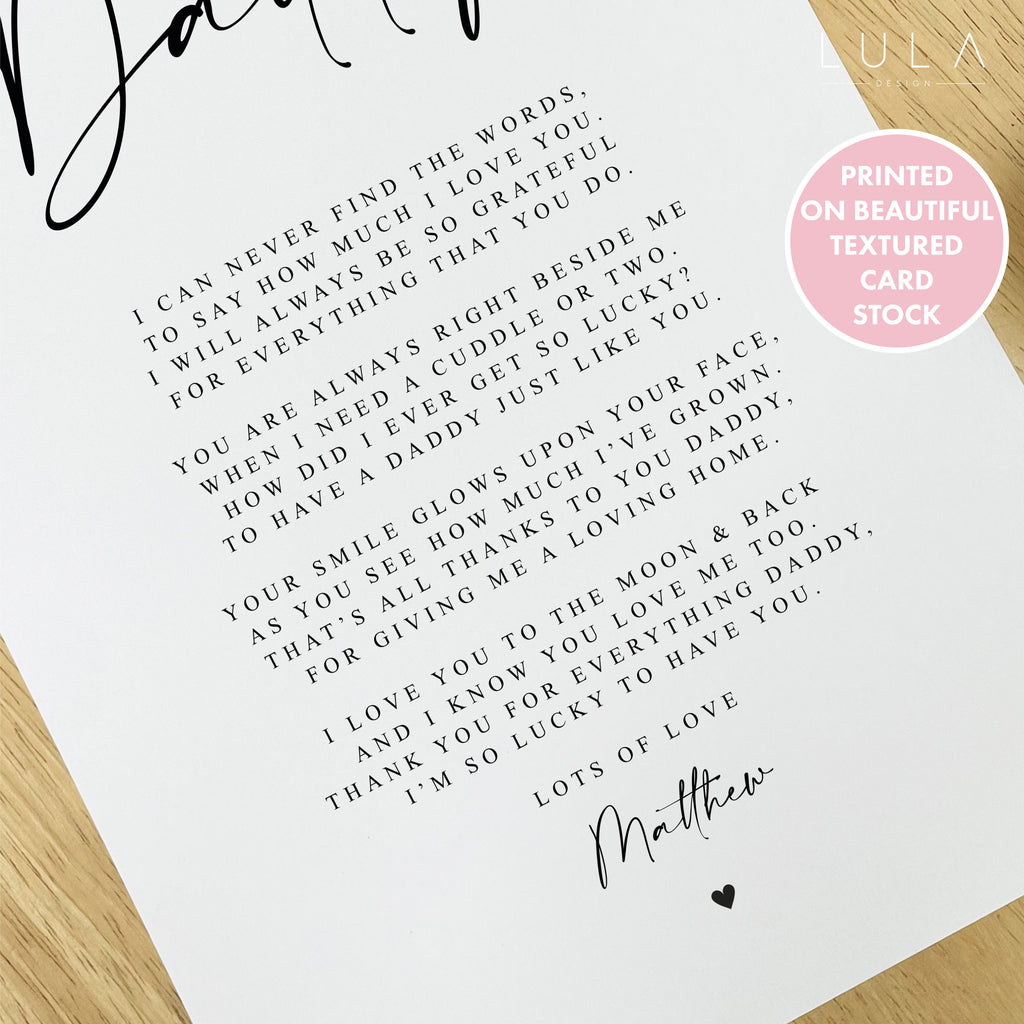 Daddy
LULA
DESIGN
PRINTED
ON BEAUTIFUL
TEXTURED
CARD
STOCK
I CAN NEVER FIND THE WORDS,
TO SAY HOW MUCH I LOVE YOU.
I WILL ALWAYS BE SO GRATEFUL
FOR EVERYTHING THAT YOU DO.
YOU ARE ALWAYS RIGHT BESIDE ME
WHEN I NEED A CUDDLE OR TWO.
HOW DID I EVER GET SO LUCKY?
TO HAVE A DADDY JUST LIKE YOU.
YOUR SMILE GLOWS UPON YOUR FACE,
AS YOU SEE HOW MUCH I'VE GROWN.
THAT'S ALL THANKS TO YOU DADDY,
FOR GIVING ME A LOVING HOME.
I LOVE YOU TO THE MOON & BACK
AND I KNOW YOU LOVE ME TOO.
THANK YOU FOR EVERYTHING DADDY,
I'M SO LUCKY TO HAVE YOU.
LOTS OF LOVE
Matthew